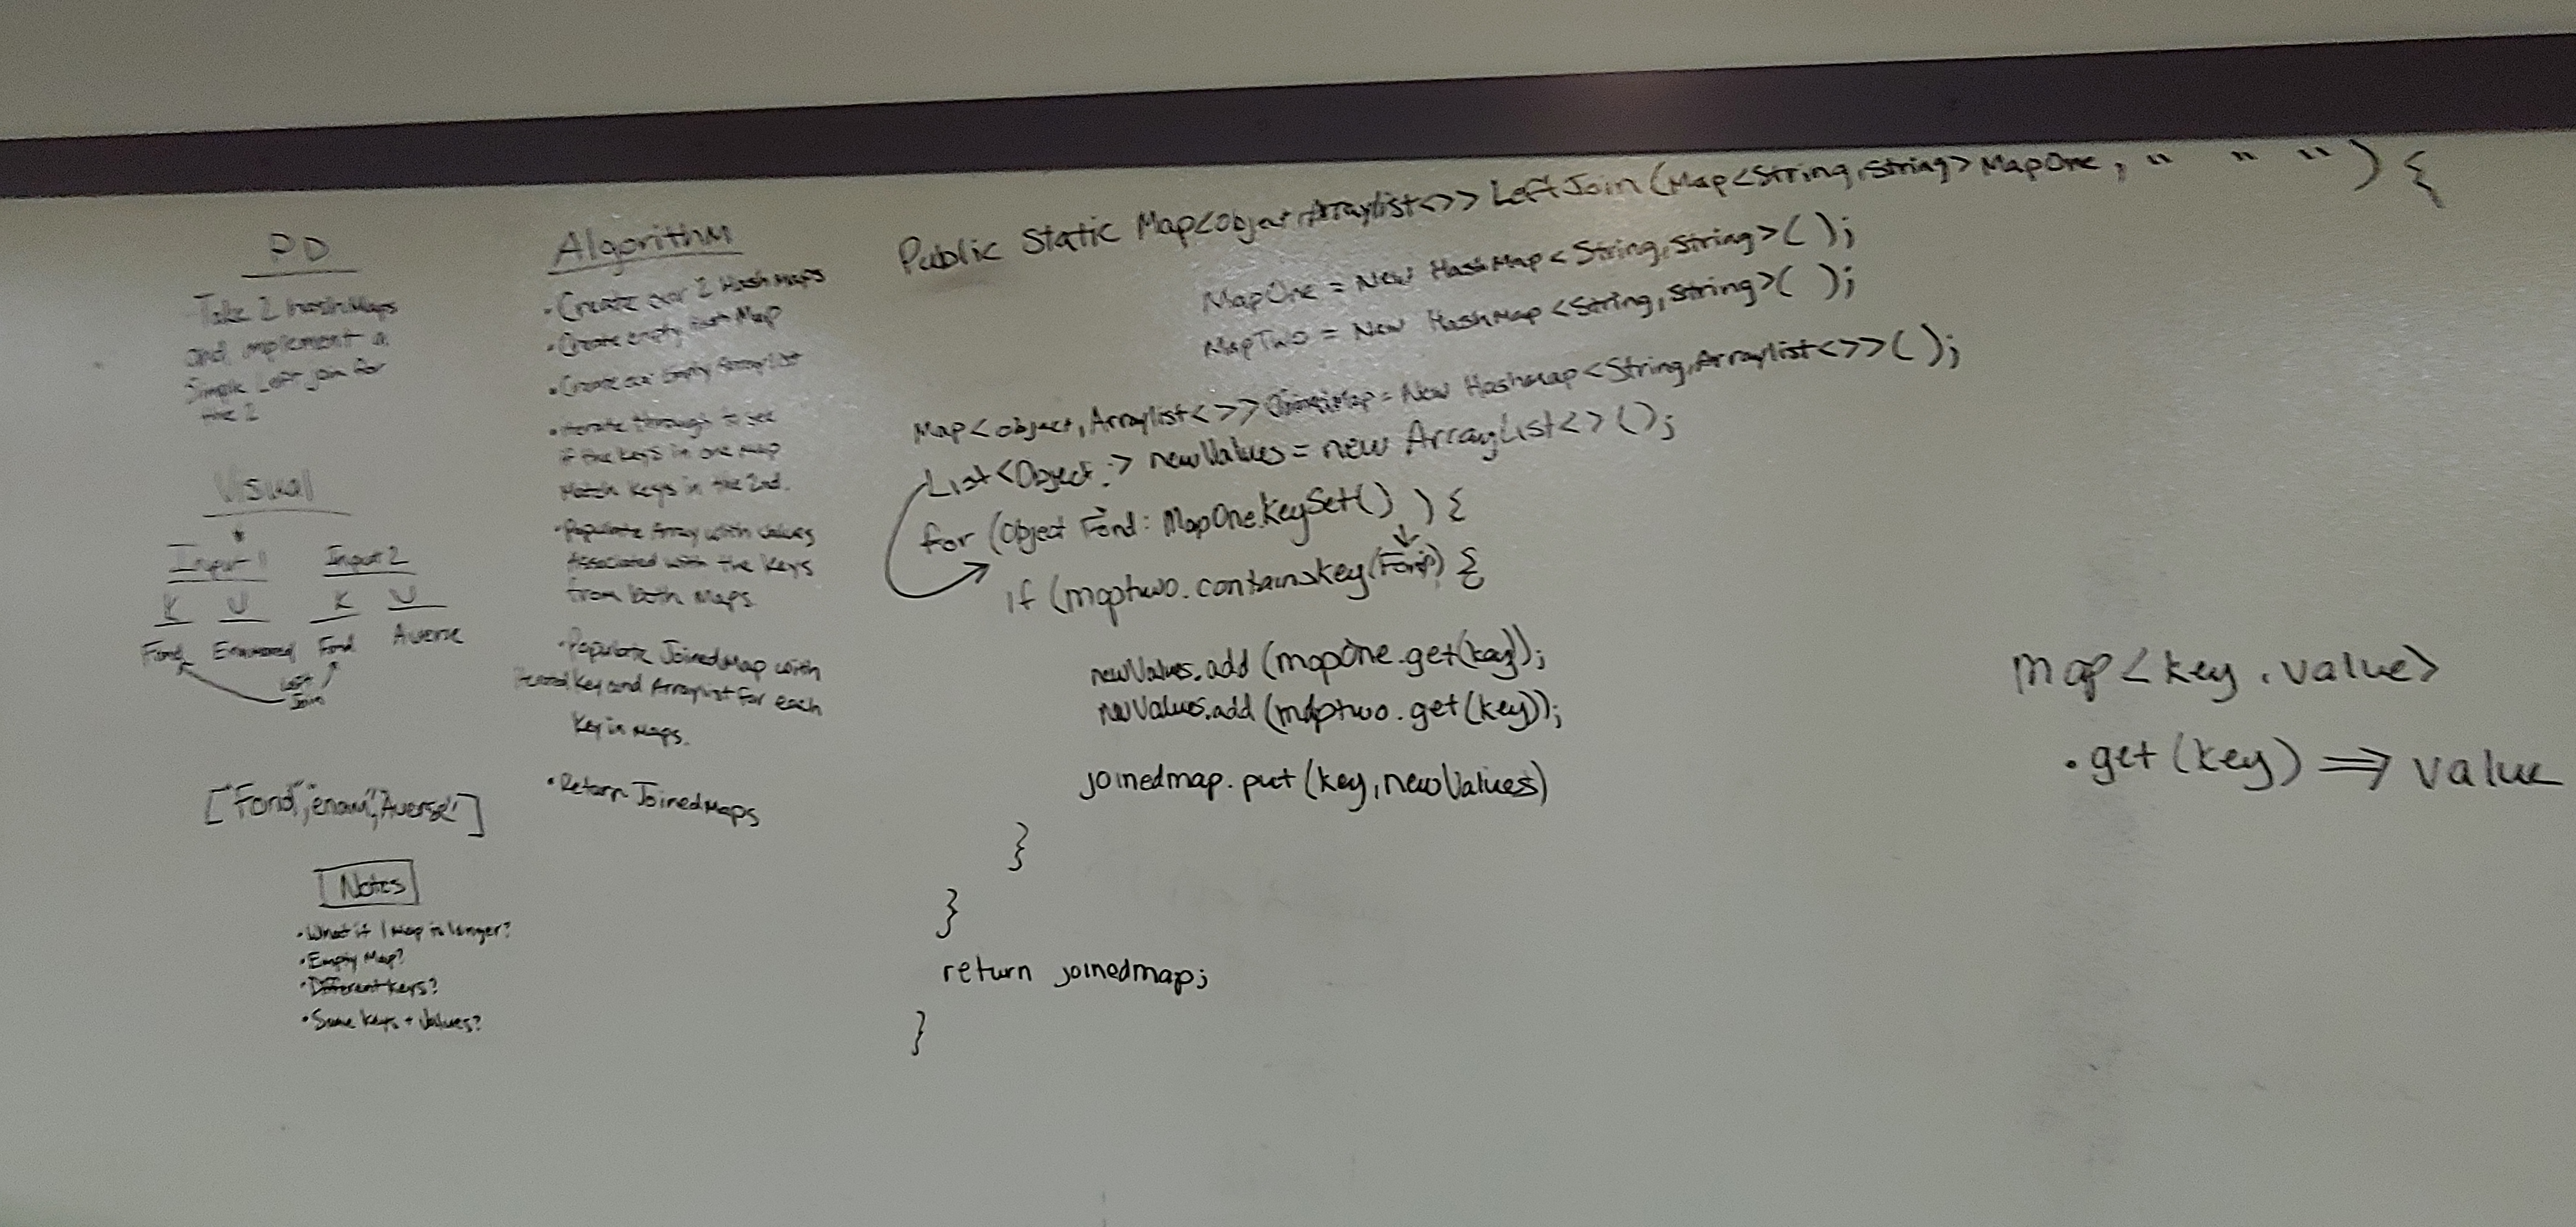 PD
Take 2 hashMaps
and implement a
Simple Left join for
the 2
Visual
Input 1 Input 2
K V K V
Fond Enamored Fond Averse
Left
Join
["Fond", "enam", "Averse"]
Notes
• What if 1 Map is longer?
• Empty Map?
• Different keys?
• Same keys + Values?
Algorithm
• Create our 2 HashMaps
• Create empty Map
• Create our Empty ArrayList
• iterate through to see
if the keys in one map
Match keys in the 2nd.
• Populate Array with values
Associated with the keys
from both Maps
• Populate JoinedMap with
key and Arraylist for each
key in Maps.
• Return JoinedMaps
Public Static Map<object, Arraylist<>> LeftJoin (Map<String, String> MapOne, " " ") {
MapOne = New HashMap<String, String>( );
MapTwo = New HashMap<String, String>( );
Map<object, Arraylist<>> JoinedMap = New Hashmap<String, Arraylist<>>( );
List<Object> newValues = new ArrayList<>();
for (Object Fond : MapOne.KeySet() ) {
if (maptwo.containskey(Fond)) {
newValues.add (mapOne.get(key));
newValues.add (maptwo.get(key));
joinedmap.put (key, newValues)
}
}
return joinedmap;
}
map<key, value>
• get(key) ⇒ value